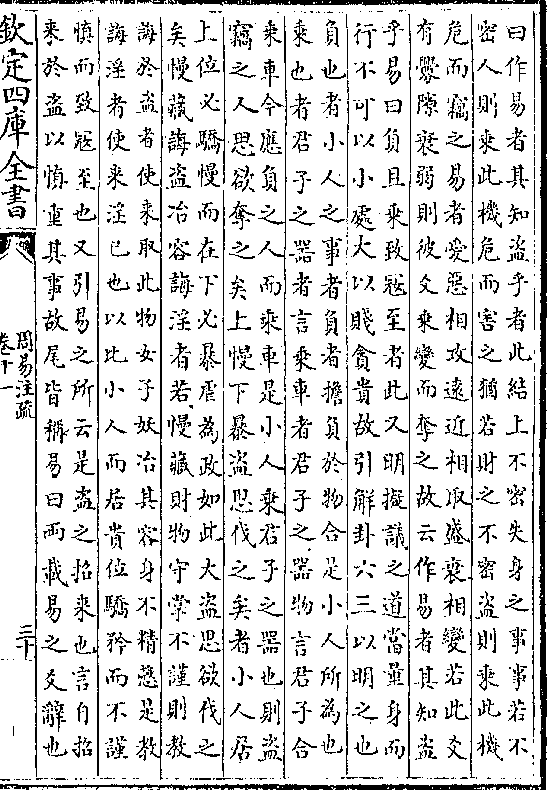 曰作易者其知盗乎者此結上不密失身之事事若不
密人則乗此機危而害之猶若財之不密盗則乗此機
危而竊之易者愛惡相攻逺近相取盛衰相變若此爻
有釁隙衰弱則彼爻乗變而奪之故云作易者其知盗
乎易曰負且乗致冦至者此又明擬議之道當量身而
行不可以小處大以賤貪貴故引解卦六三以明之也
負也者小人之事者負者擔負於物合是小人所為也
乗也者君子之器者言乗車者君子之器物言君子合
乗車今應負之人而乗車是小人乗君子之器也則盗
竊之人思欲奪之矣上慢下暴盗思伐之矣者小人居
上位必驕慢而在下必暴虐為政如此大盗思欲伐之
矣慢藏誨盗冶容誨淫者若慢藏財物守掌不謹則教
誨於盗者使來取此物女子妖冶其容身不精慤是教
誨淫者使来淫已也以比小人而居貴位驕矜而不謹
慎而致冦至也又引易之所云是盗之招来也言自招
来於盗以慎重其事故尾皆稱易曰而載易之爻辭也
欽定四庫全書
周易注疏
卷十一
三十